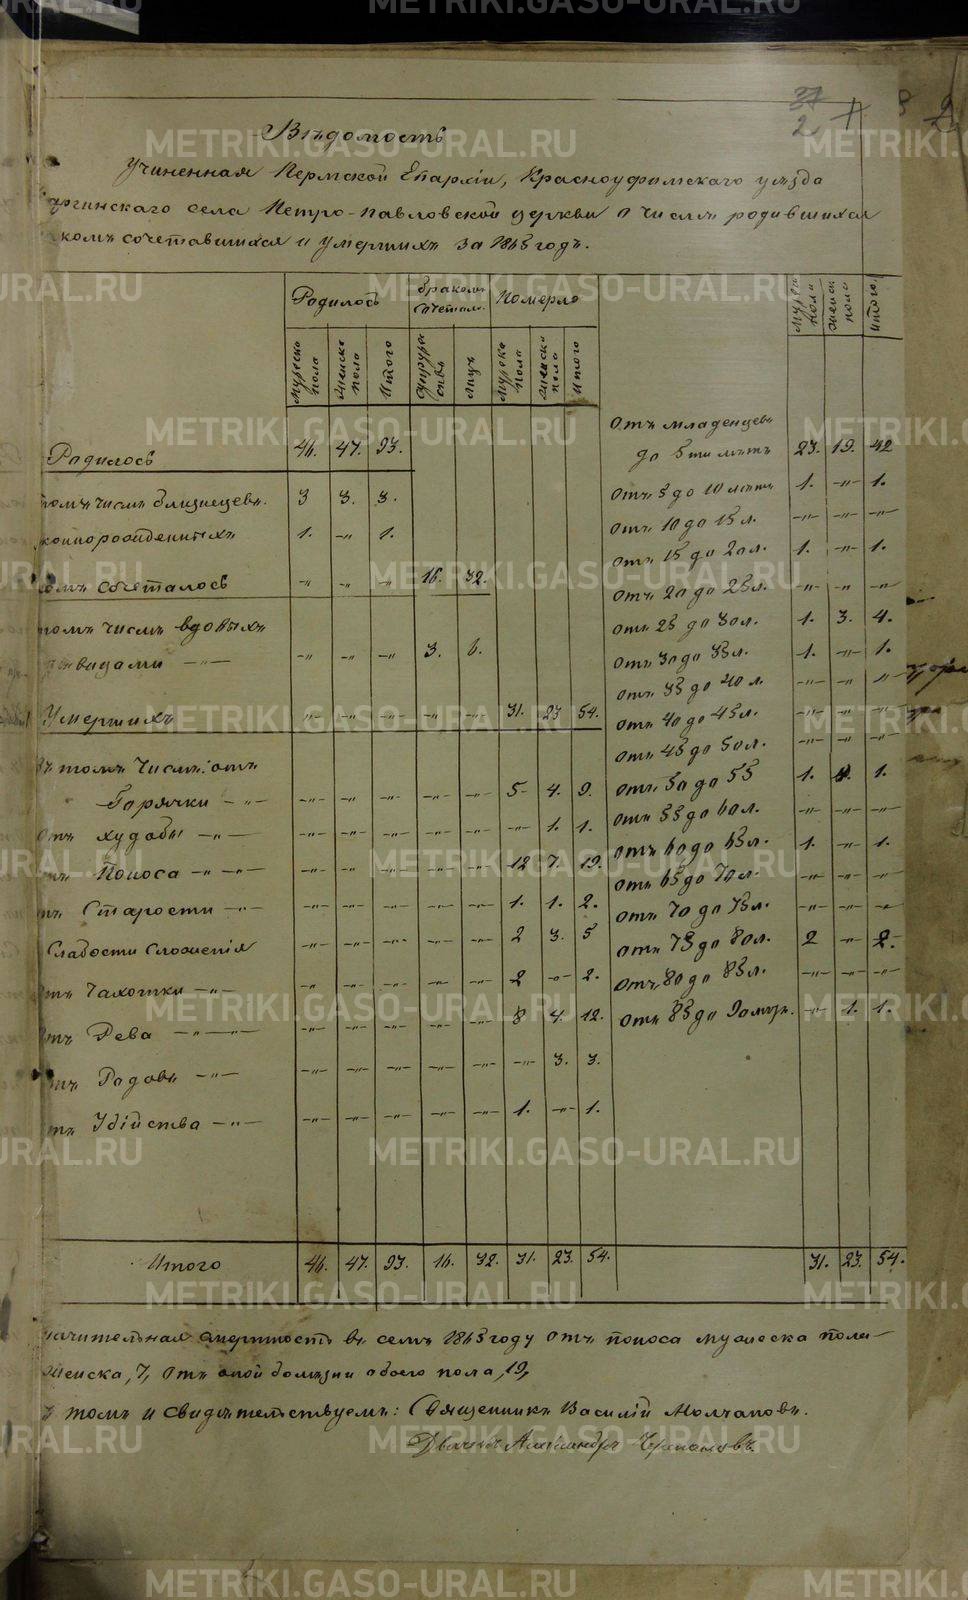 Вѣдомость
Учиненная Пермской Епархіи, Красноуфимскаго уѣзда
аргинскаго села Петро-павловской церкви о числѣ родившихся
комъ сочетавшихся и умершихъ за 1865 годъ.
Родилось Бракомъ сочетал. Померло
Мужеска пола Женска пола Итого Супружествъ Лицъ Мужеска пола Женска пола Итого
Мужеск. пола Женск. пола Итого
Родилось 46. 47. 93.
томъ числѣ близнецевъ. 3 3. 3.
коннорожденныхъ 1. -„- 1.
комъ сочеталось -„- -„- -„- 16. 32.
томъ числѣ вдовыхъ
вицами -„- -„- -„- -„- 3. 6.
Умершихъ -„- -„- -„- -„- -„- 31. 23 54.
Въ томъ числѣ: отъ
Горячки -„- -„- -„- -„- -„- -„- 5 4. 9.
Отъ худобы -„- -„- -„- -„- -„- -„- -„- 1. 1.
отъ Поноса -„- -„- -„- -„- -„- -„- 12 7. 19.
отъ Старости -„- -„- -„- -„- -„- -„- 1. 1. 2.
Слабости Сложенія -„- -„- -„- -„- -„- 2 3. 5
Отъ Чахотки -„- -„- -„- -„- -„- -„- 2 -„- 2.
Отъ Рева -„- -„- -„- -„- -„- -„- 8 4. 12.
отъ Родовъ -„- -„- -„- -„- -„- -„- -„- 3. 3.
отъ Убійства -„- -„- -„- -„- -„- -„- 1. -„- 1.
Отъ младенцевъ
до 5ти лѣтъ 23. 19. 42
Отъ 5 до 10 лѣтъ 1. -„- 1.
Отъ 10 до 15 л. -„- -„- -„-
Отъ 15 до 20 л. 1. -„- 1.
Отъ 20 до 25 л. -„- -„- -„-
Отъ 25 до 30 л. 1. 3. 4.
Отъ 30 до 35 л. 1. -„- 1.
Отъ 35 до 40 л. -„- -„- -„-
Отъ 40 до 45 л. -„- -„- -„-
Отъ 45 до 50 л. -„- -„- -„-
Отъ 50 до 55 1. 1.
Отъ 55 до 60 л. -„- -„- -„-
Отъ 60 до 65 л. 1. -„- 1.
Отъ 65 до 70 л. -„- -„- -„-
Отъ 70 до 75 л. -„- -„- -„-
Отъ 75 до 80 л. 2 -„- 2.
Отъ 80 до 85 л. -„- -„- -„-
Отъ 85 до 90 -„- 1. 1.
Итого 46. 47. 93. 16. 32. 31. 23. 54. 31. 23. 54.
начительная смертность въ семъ 1865 году отъ поноса мужеска пола
женска, 7, отъ оной болѣзни обоего пола, 19,
томъ и свидѣтельствуемъ: Священникъ Василій Молчановъ.
Дьячекъ Александръ
METRIKI.GASO-URAL.RU